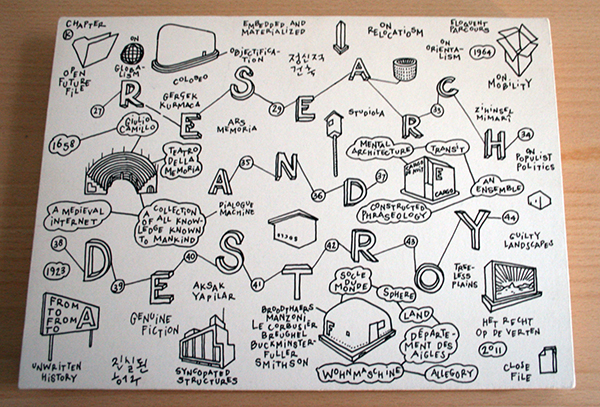 CHAPTER
K
OPEN
FUTURE
FILE
ON
GLOBAL-
ISM
EMBEDDED AND
MATERIALIZED
OBJECTIFICA-
TION
정신적
건축
ON
RELOCATIONISM
ON
ORIENTA-
LISM
ELOQUENT
PARCOURS
1964
ON
MOBILITY
GERÇEK
KURMACA
RESEARCH
27
29
33
34
1658
GIULIO
CAMILLO
TEATRO
DELLA
MEMORIA
ARS
MEMORIA
STUDIOLA
ZIHINSEL
MIMARI
ON
POPULIST
POLITICS
MENTAL
ARCHITECTURE
TRANSIT
AN
ENSEMBLE
CONSTRUCTED
PHRASEOLOGY
E
CARGO
AND
35
36
37
A MEDIEVAL
INTERNET
A COLLECTION
OF ALL KNOW-
LEDGE KNOWN
TO MANKIND
DIALOGUE
MACHINE
DESTROY
38
39
40
41
42
43
44
GUILTY
LANDSCAPES
1923
AKSAK
YAPILAR
SOCLE
DU
MONDE
SPHERE
LAND
DÉPARTE-
MENT DES
AIGLES
ALLEGORY
WOHNMASCHINE
F
TREE-
LESS
PLAINS
FROM
TO
FROM A
TO
UNWRITTEN
HISTORY
GENUINE
FICTION
진실된
허구
SYNCOPATED
STRUCTURES
BROODTHAERS
MANZONI,
LE CORBUSIER
BREUGHEL
BUCKMINSTER-
FULLER
SMITHSON
HET RECHT
OP DE VERTEN
2011
CLOSE
FILE